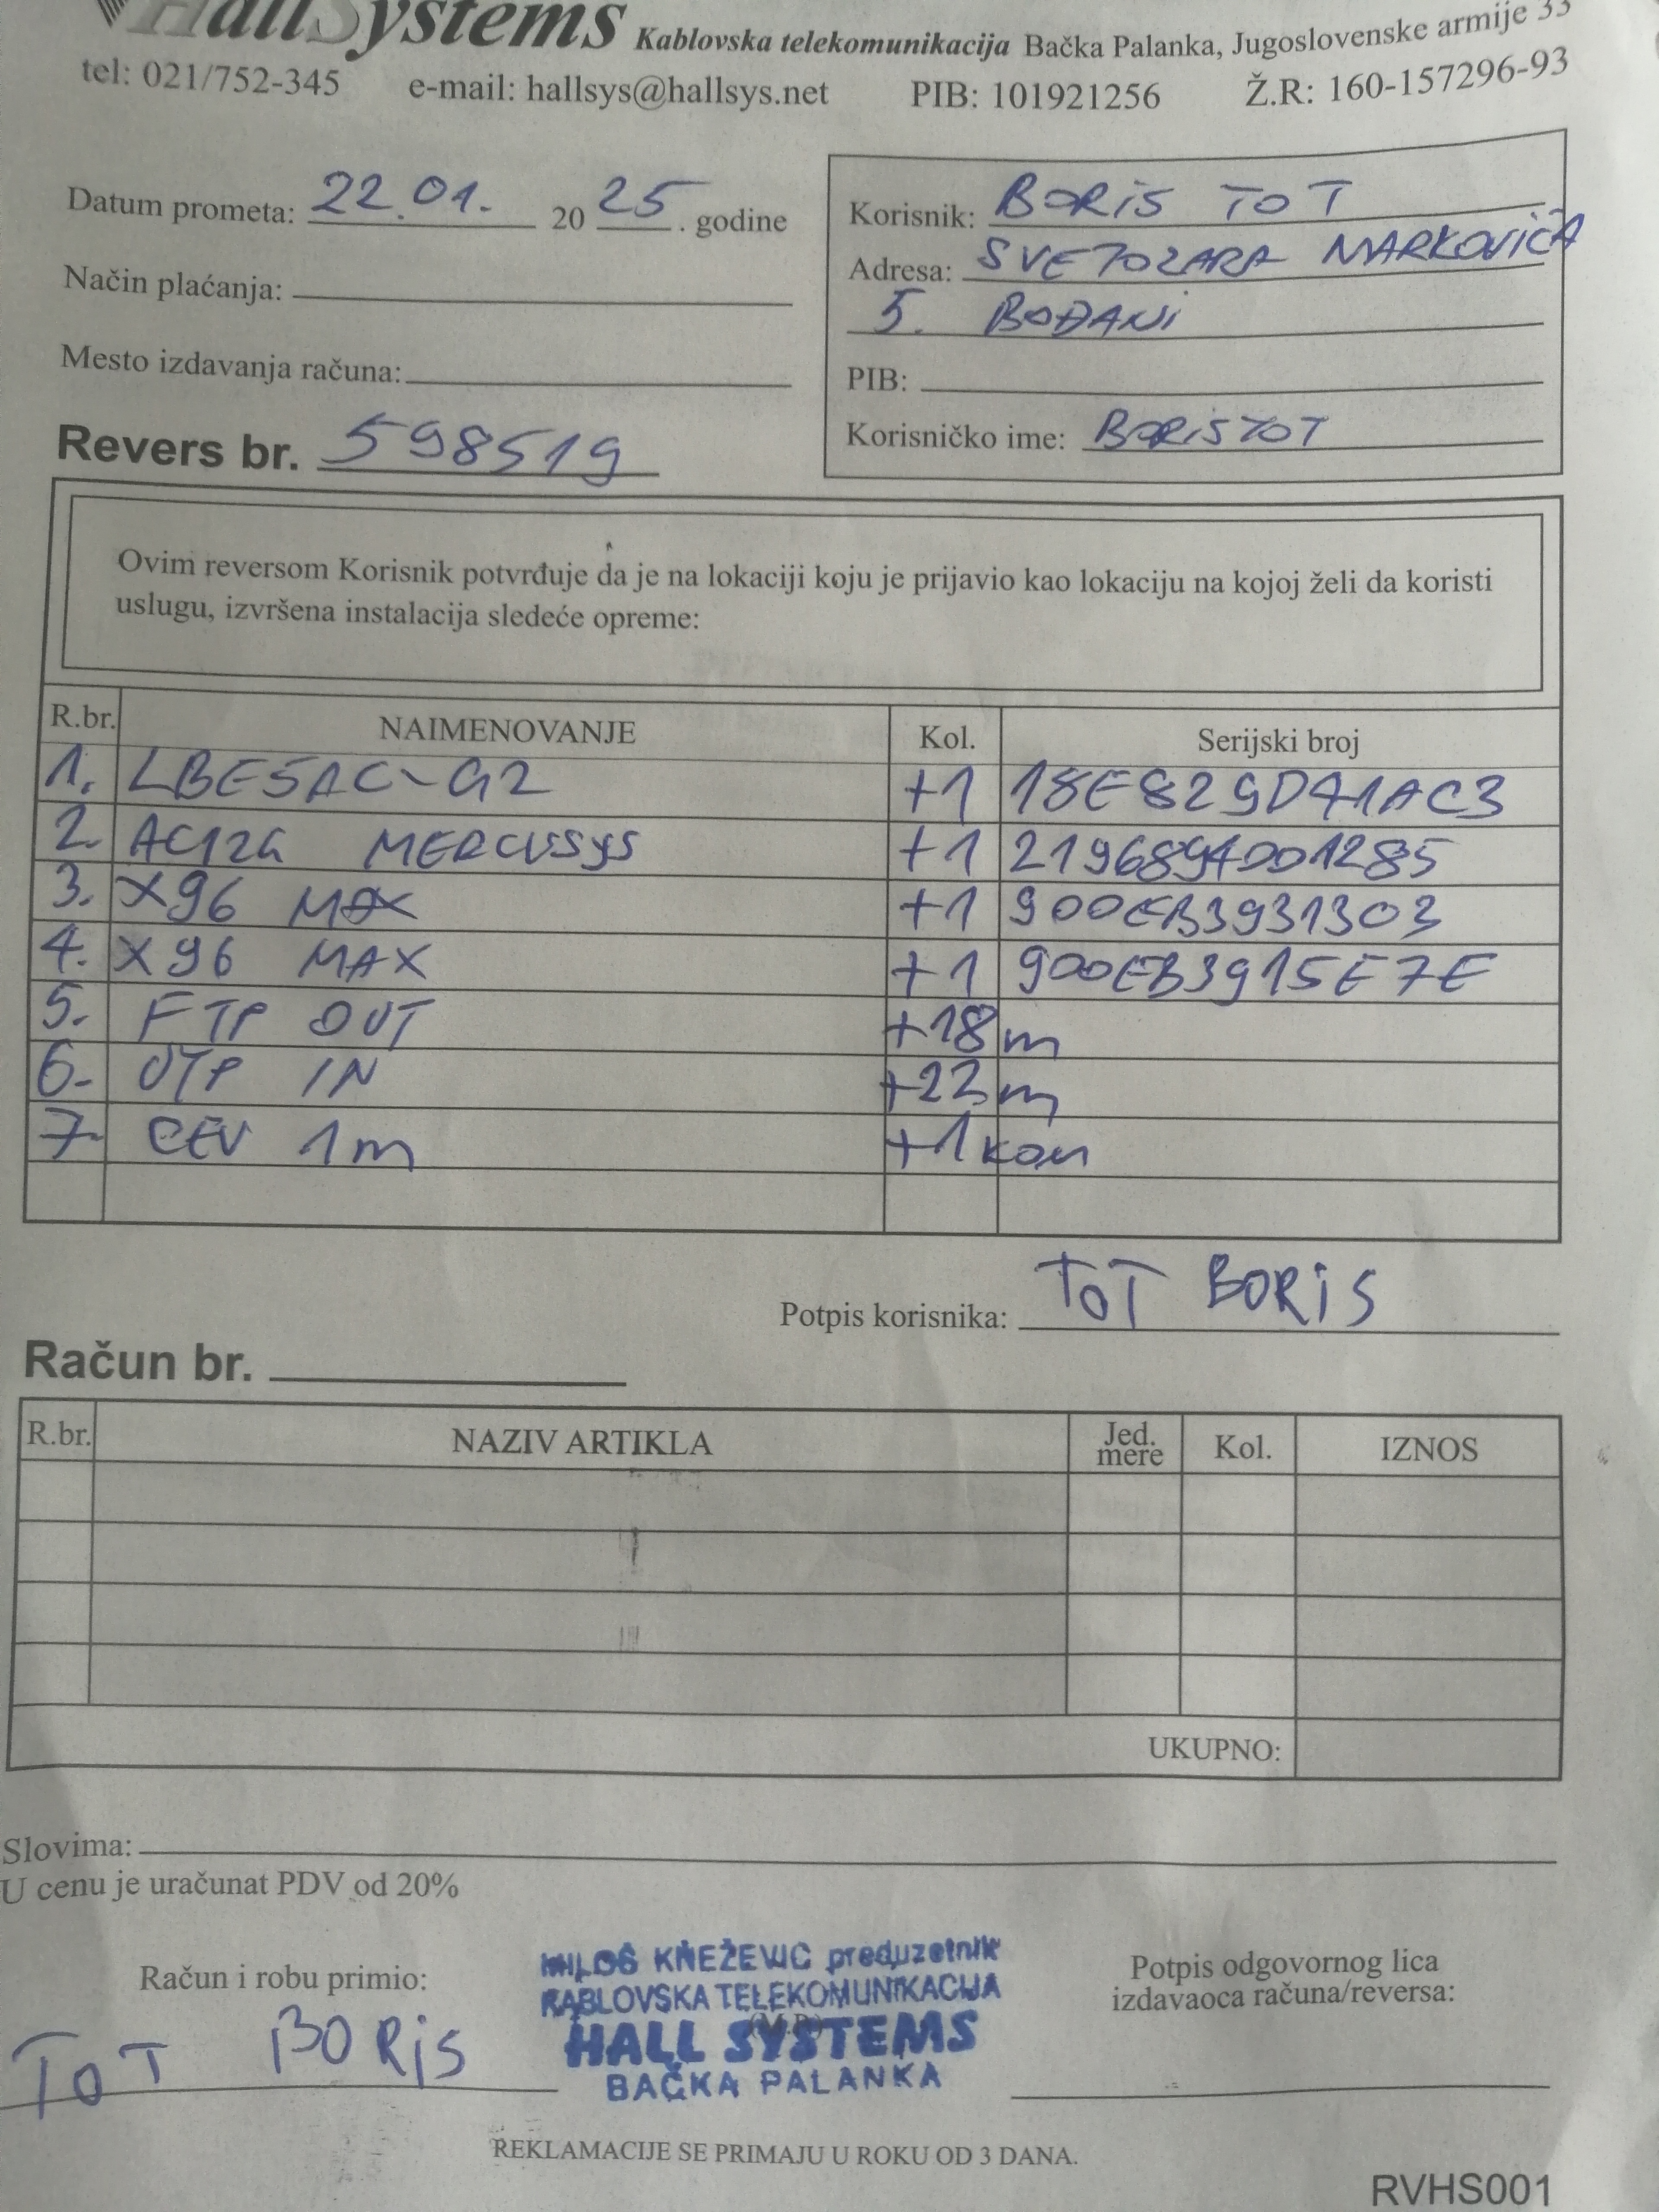 HallSystems Kablovska telekomunikacija Bačka Palanka, Jugoslovenske armije 33
tel: 021/752-345 e-mail: hallsys@hallsys.net PIB: 101921256 Ž.R: 160-157296-93
Datum prometa: 22.01. 2025. godine
Način plaćanja:
Mesto izdavanja računa:
Revers br. 598519
Korisnik: BORIS TOT
Adresa: SVETOZARA MARKOVIĆA
5. BOĐANI
PIB:
Korisničko ime: BORISTOT
Ovim reversom Korisnik potvrđuje da je na lokaciji koju je prijavio kao lokaciju na kojoj želi da koristi
uslugu, izvršena instalacija sledeće opreme:
R.br. NAIMENOVANJE Kol. Serijski broj
1. LBE5AC-G2 +1 18E829D41AC3
2. AC12G MERCUSYS +1 2196894001285
3. X96 MAX +1 900EB3931303
4. X96 MAX +1 900EB3915E7E
5. FTP OUT +18m
6. UTP IN +22m
7. CEV 1m +1kom
Potpis korisnika: TOT BORIS
Račun br.
R.br. NAZIV ARTIKLA Jed. mere Kol. IZNOS
UKUPNO:
Slovima:
U cenu je uračunat PDV od 20%
Račun i robu primio:
TOT BORIS
MILOŠ KNEŽEVIĆ preduzetnik
KABLOVSKA TELEKOMUNIKACIJA
(M.P.)
HALL SYSTEMS
BAČKA PALANKA
Potpis odgovornog lica
izdavaoca računa/reversa:
REKLAMACIJE SE PRIMAJU U ROKU OD 3 DANA.
RVHS001